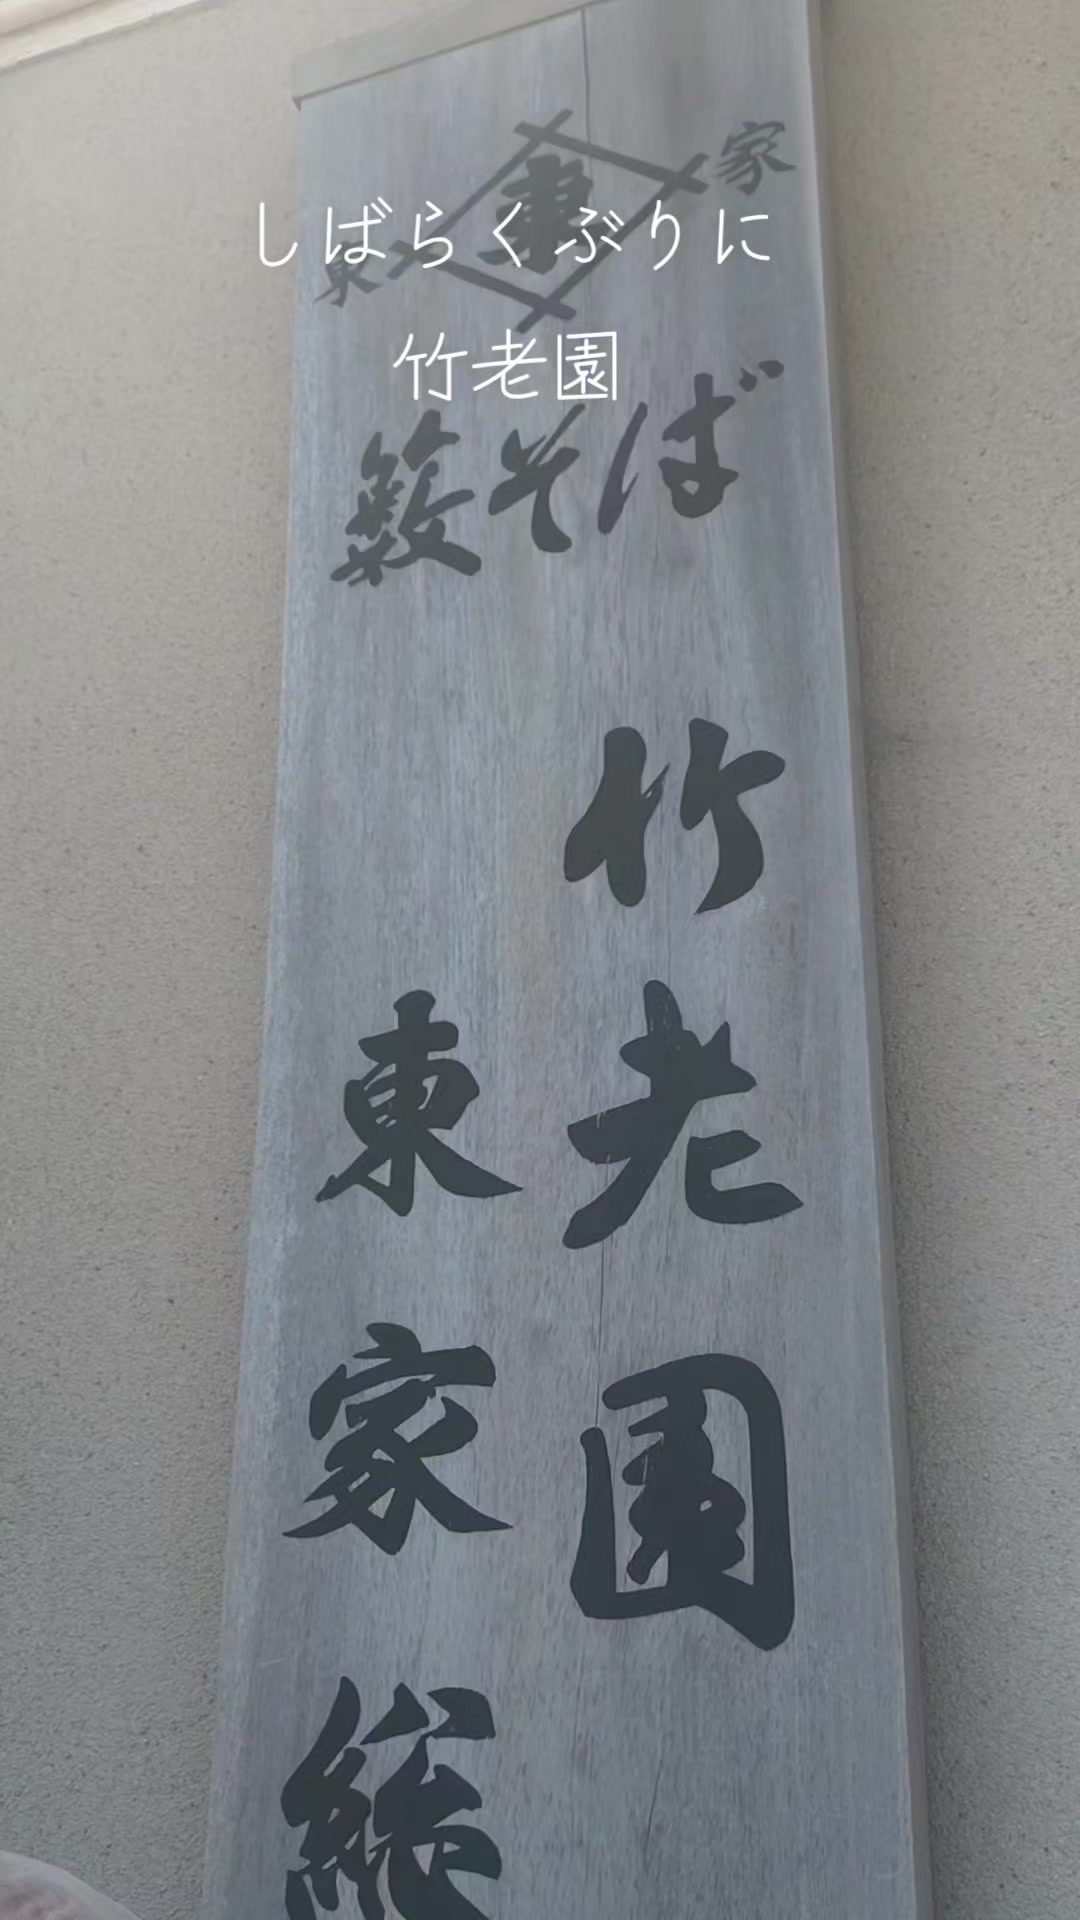 しばらくぶりに
竹老園
東 東 家
籔そば
竹老園
東家総